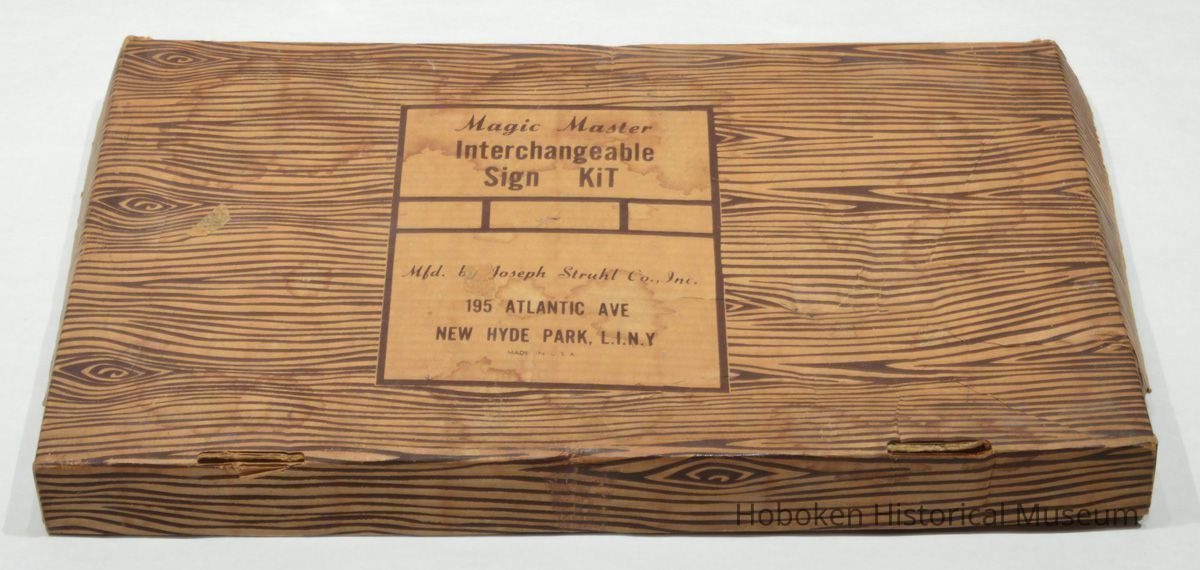 Magic Master
Interchangeable
Sign KiT
Mfd. by Joseph Struhl Co., Inc.
195 ATLANTIC AVE
NEW HYDE PARK, L.I.N.Y
MADE IN U.S.A.
Hoboken Historical Museum